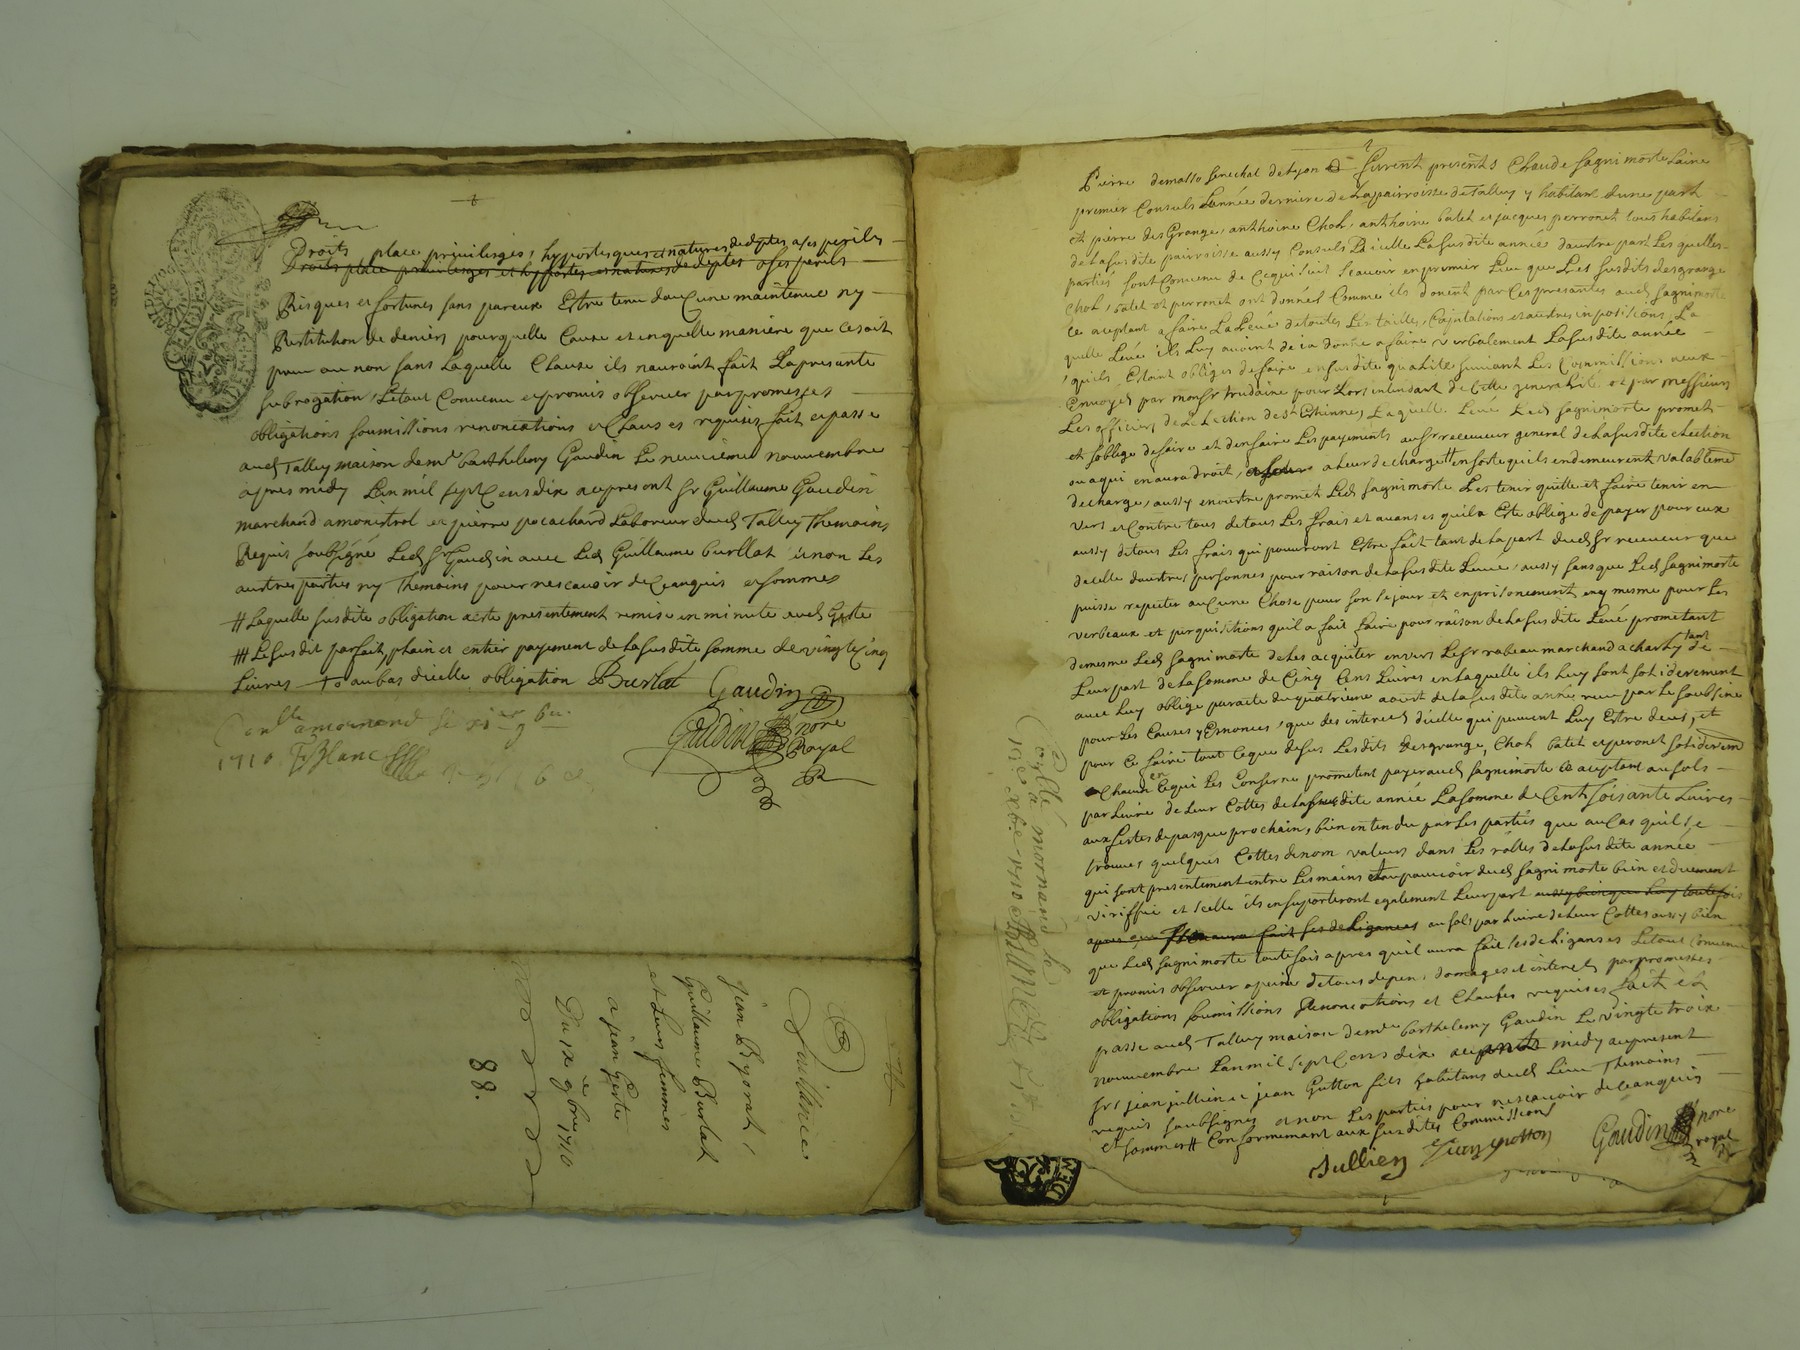 Droits place privileiges, hyppoteques et natures de deptes a ses perils
Droits place privileiges et hyppotes et natures de deptes a ses perils
Risques et fortunes sans pareux Estre tenu daucune maintenue ny
Restitution de deniers pour quelle Cause et en quelle maniere que ce soit
pour ou non sans Laquelle Clause ils nauroint fait La presante
subrogation, Letout Convenu et promis observer par promesses
obligations soumissions renonciations et Claus es requises fait et passe
aud Talluy maison de mr barthelemy Gaudin Le neuvieme nouvembre
apres midy Lan mil sept Cens dix en present sr Guillaume Gaudin
marchand a monistrol et pierre pocachard Laboreur dud Talluy Themoins
Requis soubsigné Led sr Gaudin avec Led Guillaume burllat et non Les
autres parties ny Themoins pour ne scavoir de ce enquis et sommes
# Laquelle susdite obligation a este presentement remise en minute aud Gerte
## Le susdit parfait, plain et entier payement de La susdite somme de vingt Cinq
Livres au bas dicelle obligation Burlat Gaudin
Gaudin nore
Royal
Con.lle a mornand le xi
1710 Blanc
quittance
jean Byorat,
Guillaume Burlat
et Leurs femmes
a jean Gerte
Du ix e 9bre 1710
88.
Pierre de masso senechal de Lyon furent presents Claude sagnimorte Laine
premier Consuls Lannée derniere de La parroisse de Talluy y habitant dune part
et pierre des Grange, anthoine Chol, anthoine batet et jacques perronet tous habitans
de La susdite pairroisse aussy Consuls dicelle La susdite année dautre part Les quelles
parties sont Convenu de ce qui suit scavoir en premier Lieu que Les susdits desgrange
Chol, batet et perronet ont donnés Comme ils donent par Ces presantes aud sagnimorte
Ce aceptant a faire La Levé de toutes Les tailles, Capitations et autres inpositions, La
quelle Levé ils Luy avoint deia donné a faire verbalement La susdite année
quils Estoint obliges de faire en susdite qualité suivant Les Commissions a eux
Envoyés par monsr trudaine pour Lors intendant de Cette generalité et par messieurs
Les officiers de Lelection de st Ethinne, Laquelle Levé Led sagnimorte promet
et soblige de faire et den faire Les payements au sr receveur general de La susdite election
ou a qui en aura droit, a leur decharge en sorte quils en demeurent valableme
decharge, aussy en outre promet Led sagnimorte Les tenir quitte et faire tenir en
vers et Contre tous de tous Les frais et avans es quil a Esté oblige de payer pour eux
aussy de tous Les frais qui pouvront Estre fait tant de La part dud sr receveur que
de celle dautres personnes pour raison de La susdite Levee, aussy sans que Led sagnimorte
puisse repeter aucune Chose pour son sejour et enprisonement ny mesme pour Les
verbeaux et perquisitions quil a fait faire pour raison de La susdite Levé prometant
de mesme Led sagnimorte de Les acquiter envers Le sr rabeau marchand a charly tant de
Leur part de La somme de Cinq Cens Livres en Laquelle ils Luy sont solidairement
avec Luy oblige par acte du quatrieme aoust de La susdite année receu par Le soubsine
pour Les Causes y Ennonces, que des interets dicelle qui peuvent Luy Estre deus, et
pour Ce faire tout Ceque desus Lesdits desgrange, Chol batet et peronet solidairem
Chacun en Cequi Les Conserne prometent payer aud sagnimorte Ce aceptant au sols
par Livre de Leur Cottes de La susdite année La somme de Cent soisante Livres
aux festes de pasque prochain, bien entendu par Les parties que au Cas quil se
trouve, quelques Cottes de non valeurs dans Les rolles de La susdite année
qui sont presentement entre Les mains et au pouvoir dud sagnimorte bien et duement
viriffié et scelle ils en suporteront egalement Leur part aussy bien que Luy toutefois
apres quil en aura fait ses deligances au sols par Livre de Leur Cottes aussy bien
que Led sagnimorte toutefois apres quil aura fait ses deliganses Letout Convenu
et promis observer a peine de tous depens, domages et interets par promesses
obligations soumissions Renonciations et Clauses requises fait et
passe aud Talluy maison de mre barthelemy Gaudin Le vingt troix
nouvembre Lan mil sept Cens dix midy en present
srs jean jullien et jean Gutton fils habitans dud Lieu Themoins
requis soubsignes et non Les parties pour ne scavoir de ce enquis
et sommes # Conformemant aux susdites Commissions
Jullien Jean gutton Gaudin nore
royal
Con.lle a mornand le
1710 BLANC